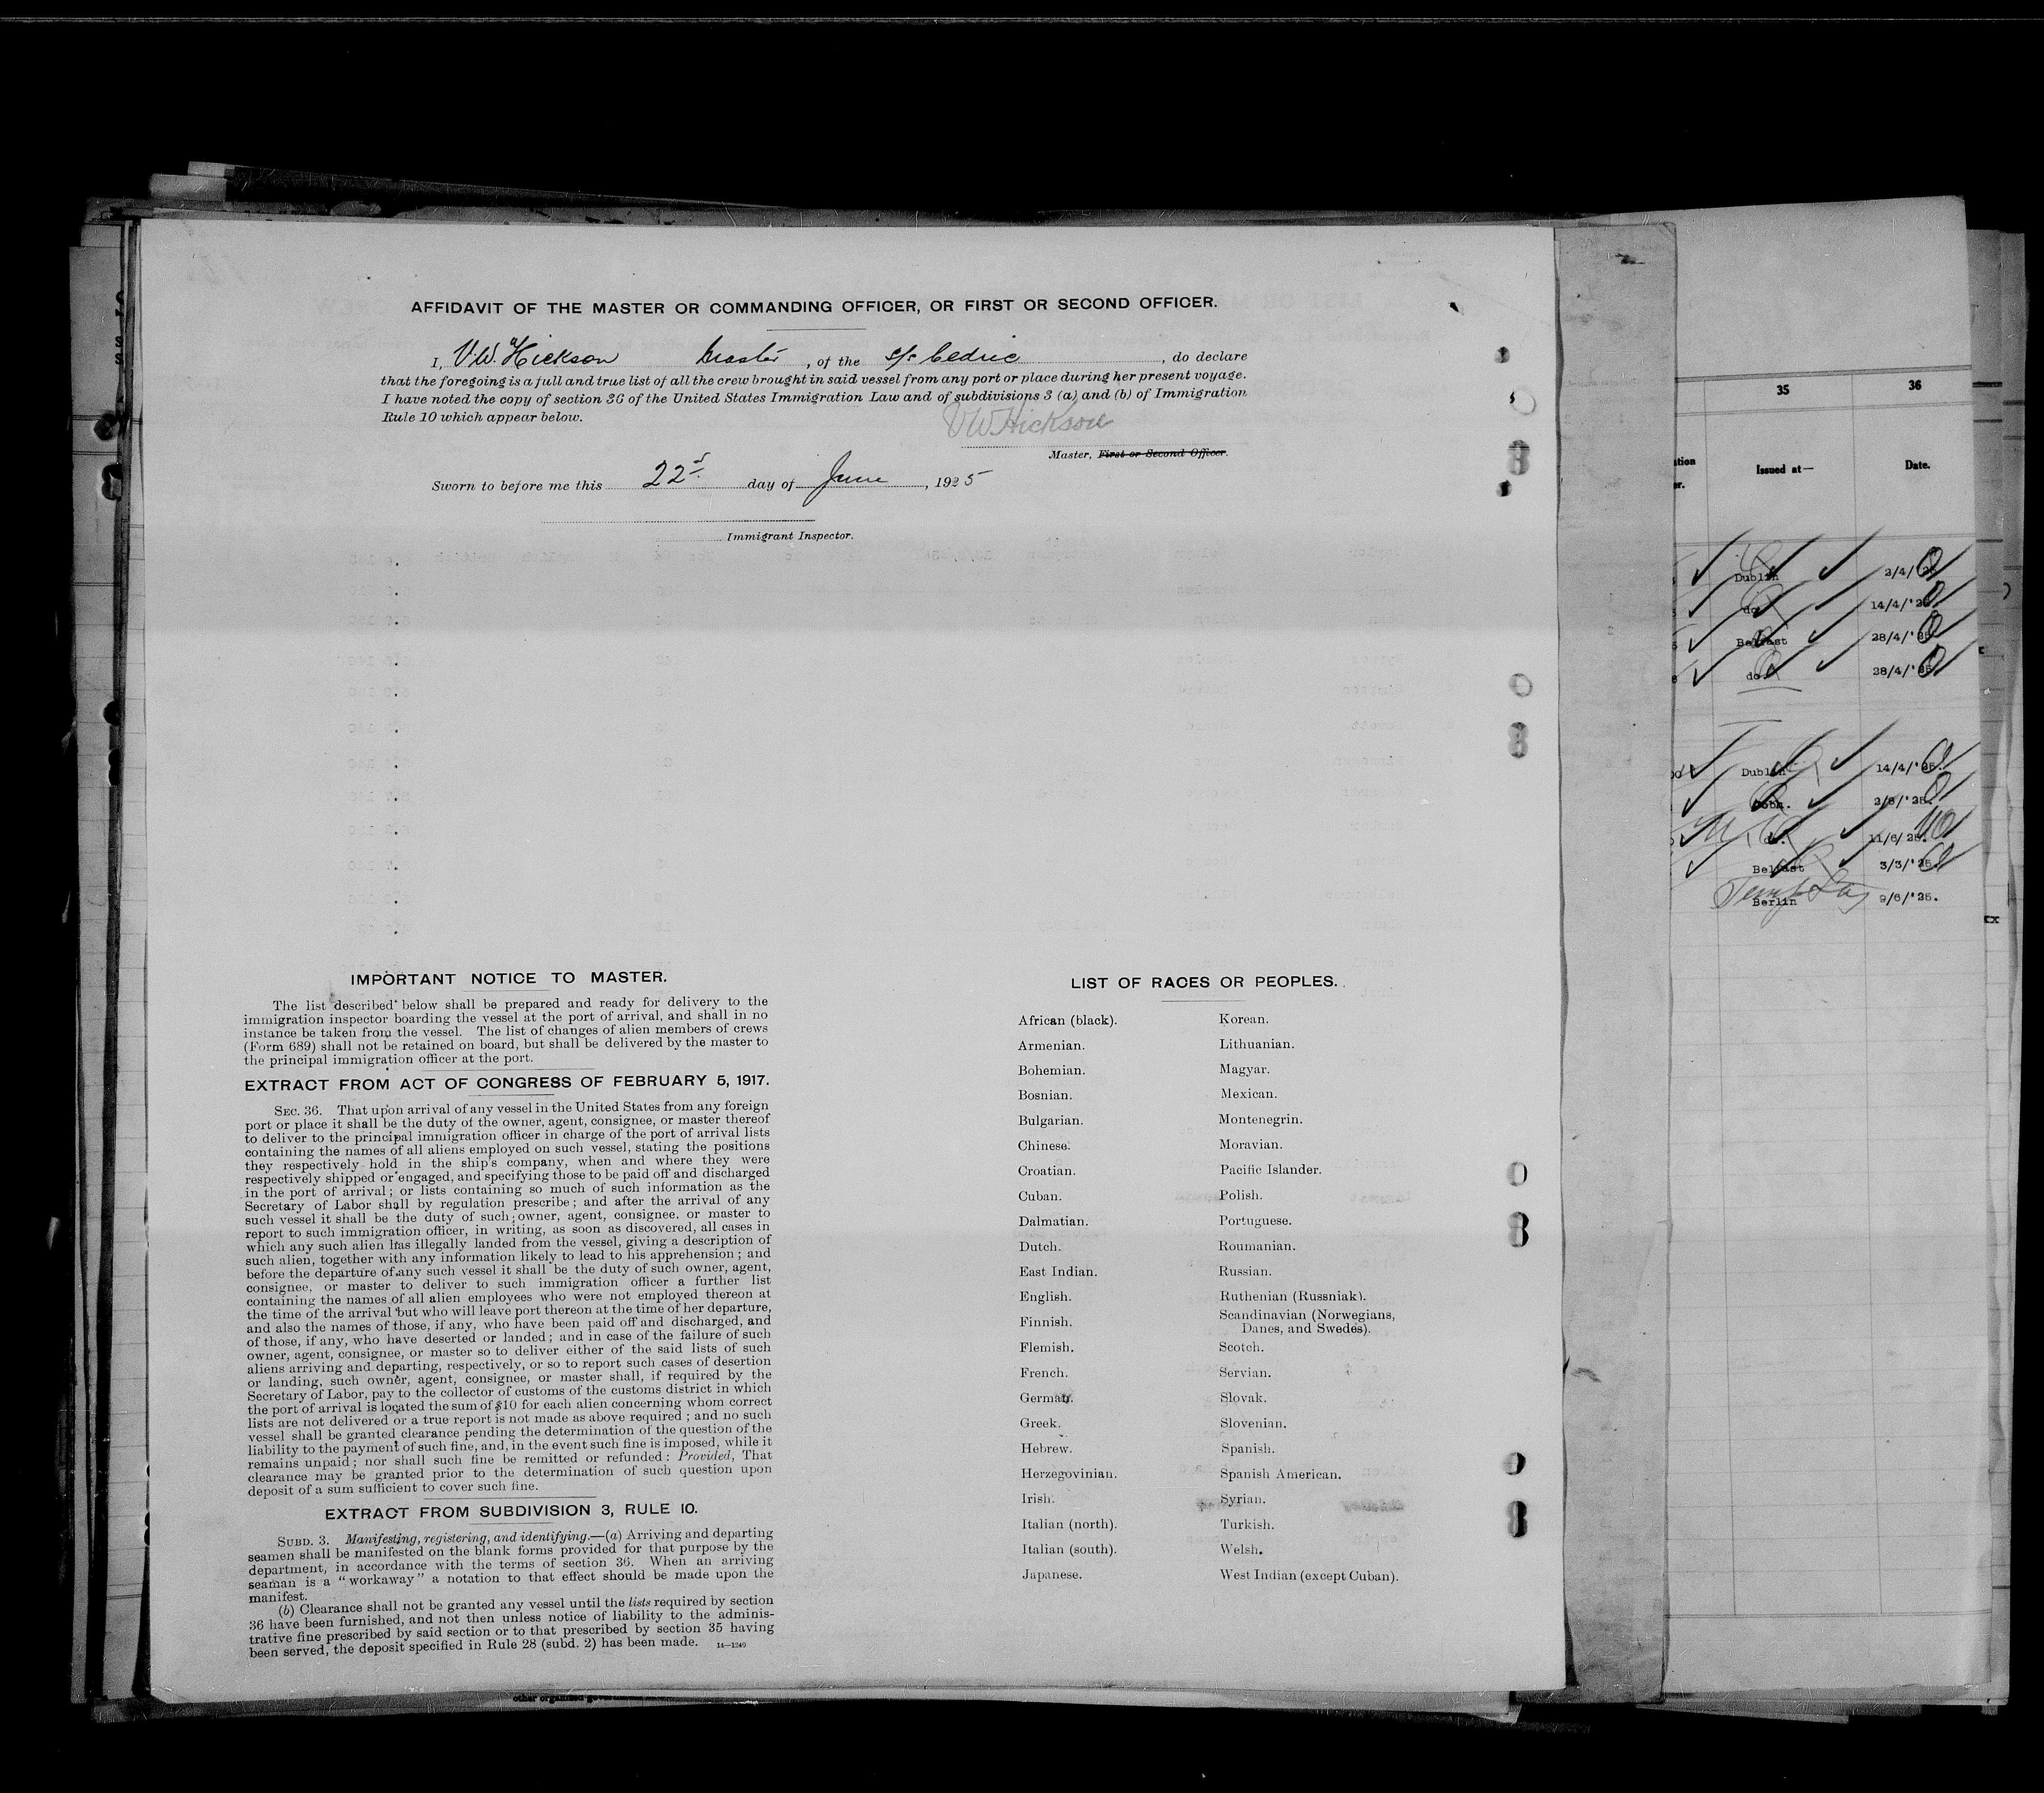 AFFIDAVIT OF THE MASTER OR COMMANDING OFFICER, OR FIRST OR SECOND OFFICER.
I, V.W. Hickson Master, of the s/s Cedric, do declare
that the foregoing is a full and true list of all the crew brought in said vessel from any port or place during her present voyage.
I have noted the copy of section 36 of the United States Immigration Law and of subdivisions 3 (a) and (b) of Immigration
Rule 10 which appear below.
VW Hickson
Master, First or Second Officer.
Sworn to before me this 22d day of June, 1925
Immigrant Inspector.
IMPORTANT NOTICE TO MASTER.
The list described below shall be prepared and ready for delivery to the
immigration inspector boarding the vessel at the port of arrival, and shall in no
instance be taken from the vessel. The list of changes of alien members of crews
(Form 689) shall not be retained on board, but shall be delivered by the master to
the principal immigration officer at the port.
EXTRACT FROM ACT OF CONGRESS OF FEBRUARY 5, 1917.
SEC. 36. That upon arrival of any vessel in the United States from any foreign
port or place it shall be the duty of the owner, agent, consignee, or master thereof
to deliver to the principal immigration officer in charge of the port of arrival lists
containing the names of all aliens employed on such vessel, stating the positions
they respectively hold in the ship's company, when and where they were
respectively shipped or engaged, and specifying those to be paid off and discharged
in the port of arrival; or lists containing so much of such information as the
Secretary of Labor shall by regulation prescribe; and after the arrival of any
such vessel it shall be the duty of such owner, agent, consignee. or master to
report to such immigration officer, in writing, as soon as discovered, all cases in
which any such alien has illegally landed from the vessel, giving a description of
such alien, together with any information likely to lead to his apprehension; and
before the departure of any such vessel it shall be the duty of such owner, agent,
consignee, or master to deliver to such immigration officer a further list
containing the names of all alien employees who were not employed thereon at
the time of the arrival but who will leave port thereon at the time of her departure,
and also the names of those, if any, who have been paid off and discharged, and
of those, if any, who have deserted or landed; and in case of the failure of such
owner, agent, consignee, or master so to deliver either of the said lists of such
aliens arriving and departing, respectively, or so to report such cases of desertion
or landing, such owner, agent, consignee, or master shall, if required by the
Secretary of Labor, pay to the collector of customs of the customs district in which
the port of arrival is located the sum of $10 for each alien concerning whom correct
lists are not delivered or a true report is not made as above required; and no such
vessel shall be granted clearance pending the determination of the question of the
liability to the payment of such fine, and, in the event such fine is imposed, while it
remains unpaid; nor shall such fine be remitted or refunded: Provided, That
clearance may be granted prior to the determination of such question upon
deposit of a sum sufficient to cover such fine.
EXTRACT FROM SUBDIVISION 3, RULE 10.
SUBD. 3. Manifesting, registering, and identifying.—(a) Arriving and departing
seamen shall be manifested on the blank forms provided for that purpose by the
department, in accordance with the terms of section 36. When an arriving
seaman is a "workaway" a notation to that effect should be made upon the
manifest.
(b) Clearance shall not be granted any vessel until the lists required by section
36 have been furnished, and not then unless notice of liability to the adminis-
trative fine prescribed by said section or to that prescribed by section 35 having
been served, the deposit specified in Rule 28 (subd. 2) has been made. 14—1240
LIST OF RACES OR PEOPLES.
African (black). Korean.
Armenian. Lithuanian.
Bohemian. Magyar.
Bosnian. Mexican.
Bulgarian. Montenegrin.
Chinese. Moravian.
Croatian. Pacific Islander.
Cuban. Polish.
Dalmatian. Portuguese.
Dutch. Roumanian.
East Indian. Russian.
English. Ruthenian (Russniak).
Finnish. Scandinavian (Norwegians,
Danes, and Swedes).
Flemish. Scotch.
French. Servian.
German. Slovak.
Greek. Slovenian.
Hebrew. Spanish.
Herzegovinian. Spanish American.
Irish. Syrian.
Italian (north). Turkish.
Italian (south). Welsh.
Japanese. West Indian (except Cuban).
35 36
Issued at— Date.
Dublin 2/4/'25
do. 14/4/'25
Belfast 28/4/'25
do. 28/4/'25
Dublin 14/4/'25.
Cobh. 2/6/'25.
do. 11/6/'25.
Belfast 3/3/'25.
Berlin 9/6/'25.